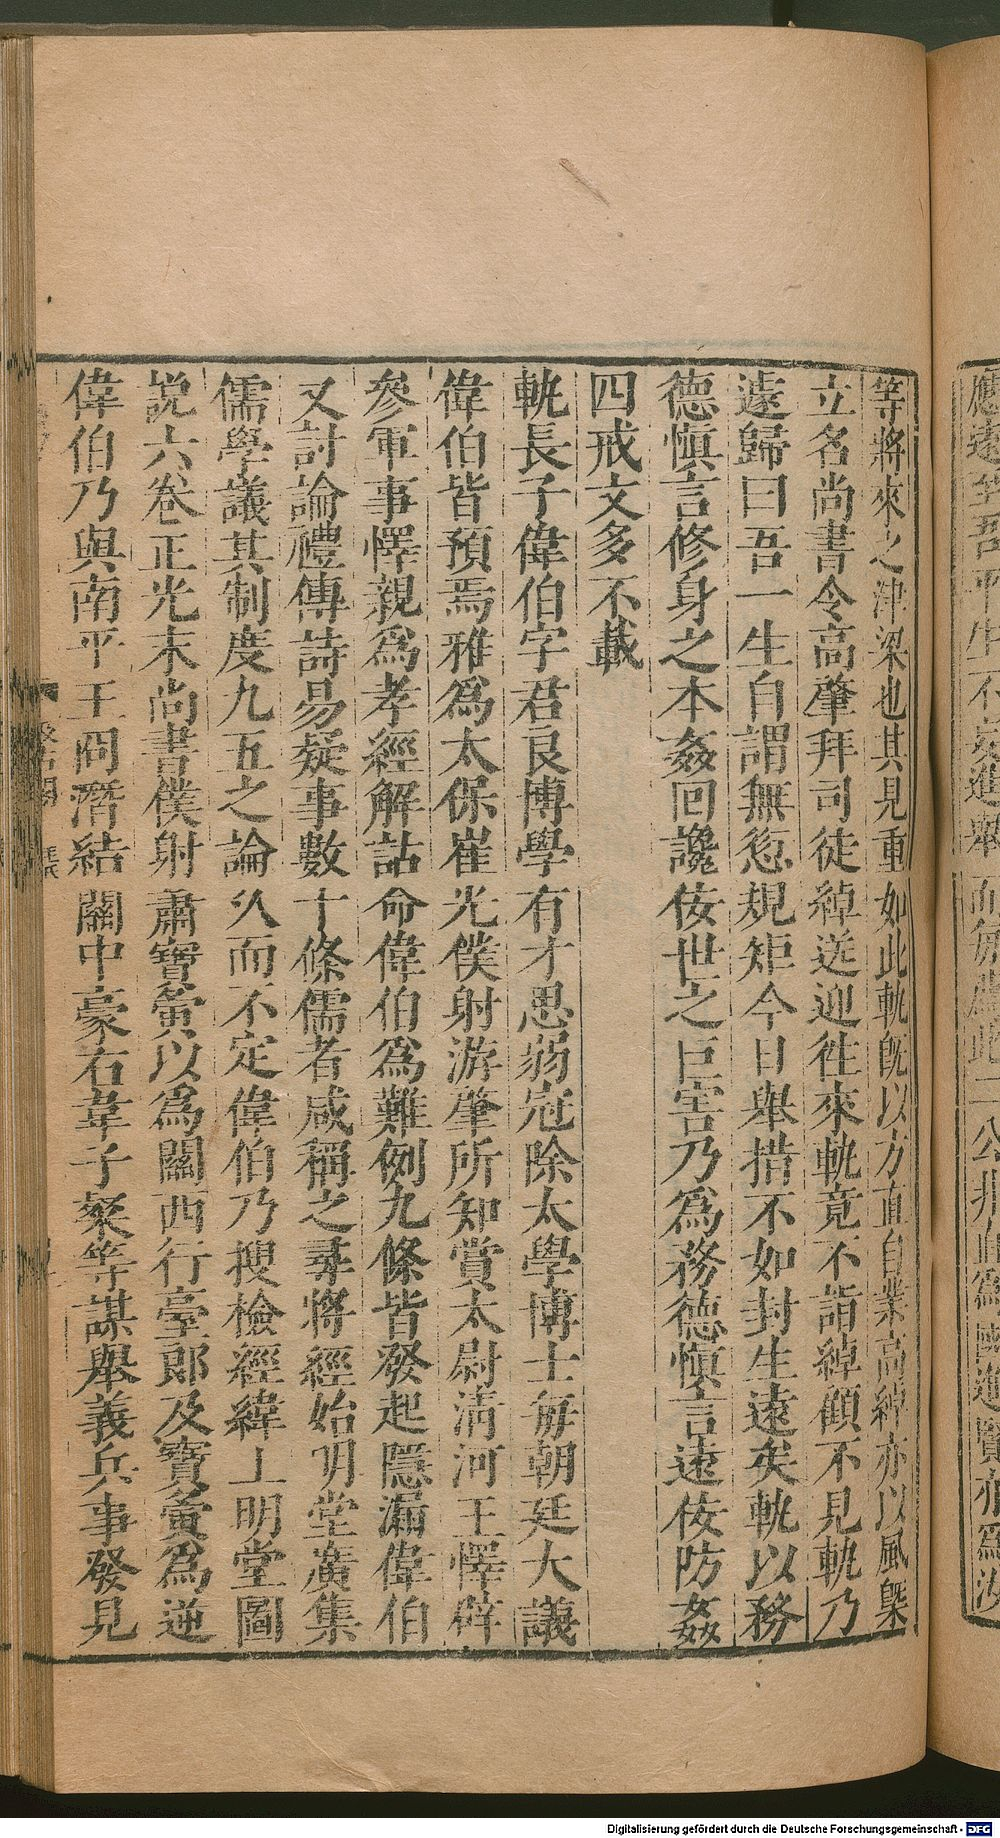 等將來之津梁也其見重如此軌旣以方直自業高綽亦以風槩
立名尚書令高肇拜司徒綽送迎徃來軌竟不詣綽顧不見軌乃
遽歸曰吾一生自謂無愆規矩今日舉措不如封生遠矣軌以務
德愼言修身之本姦回讒佞世之巨害乃爲務德愼言遠佞防姦
四戒文多不載
軌長子偉伯字君良博學有才思弱冠除太學博士每朝廷大議
偉伯皆預焉雅爲太保崔光僕射游肇所知賞太尉淸河王懌辟
參軍事懌親爲孝經解詁命偉伯爲難例九條皆發起隱漏偉伯
又討論禮傳詩易疑事數十條儒者咸稱之尋將經始明堂廣集
儒學議其制度九五之論久而不定偉伯乃搜檢經緯上明堂圖
說六卷正光末尚書僕射蕭寶夤以爲關西行臺郎及寶夤爲逆
偉伯乃與南平王冏潛結關中豪右韋子粲等謀舉義兵事發見
Digitalisierung gefördert durch die Deutsche Forschungsgemeinschaft - DFG